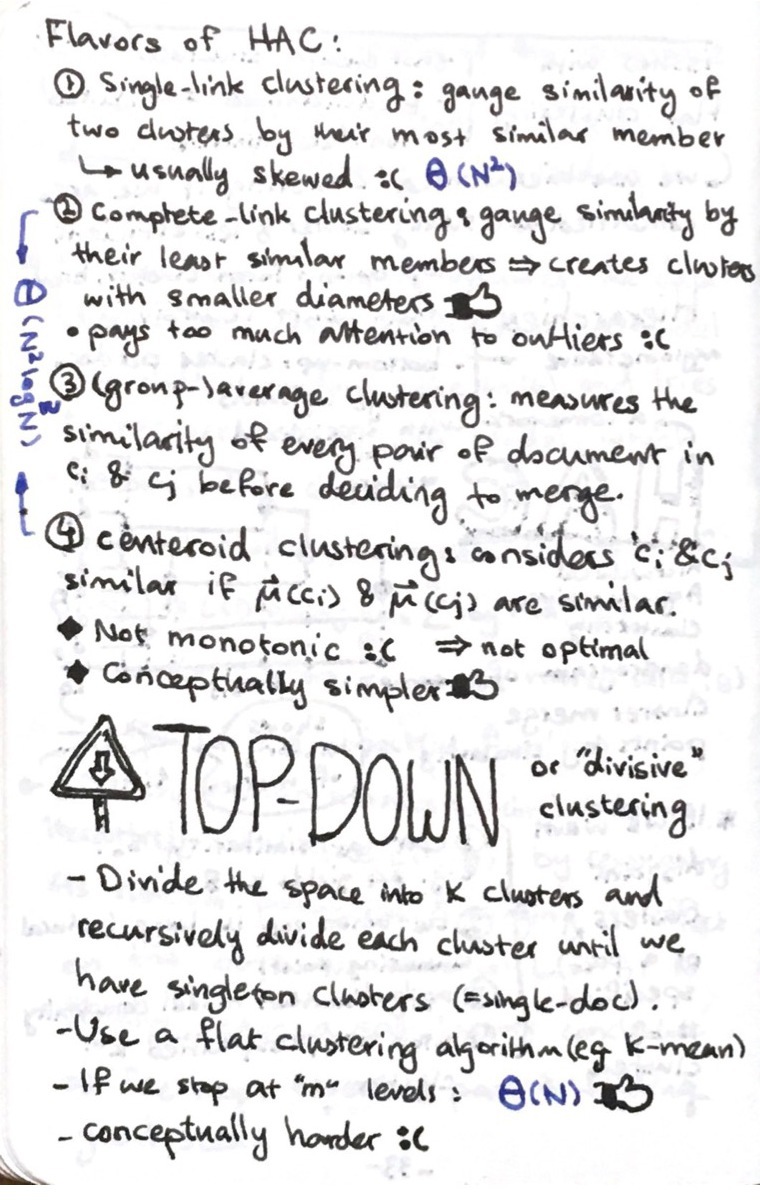 Flavors of HAC:
① Single-link clustering: gauge similarity of
two clusters by their most similar member
↳ usually skewed :( Θ(N²)
② Complete-link clustering: gauge similarity by
their least similar members ⇒ creates clusters
with smaller diameters 👍
• pays too much attention to outliers :(
Θ(N² log N)
③ (group-)average clustering: measures the
similarity of every pair of document in
ci & cj before deciding to merge.
④ centeroid clustering: considers ci & cj
similar if μ⃗(ci) & μ⃗(cj) are similar.
◆ Not monotonic :( ⇒ not optimal
◆ Conceptually simpler 👍
TOP-DOWN or "divisive"
clustering
- Divide the space into K clusters and
recursively divide each cluster until we
have singleton clusters (=single-doc).
- Use a flat clustering algorithm (eg K-mean)
- If we stop at "m" levels: Θ(N) 👍
- conceptually harder :(